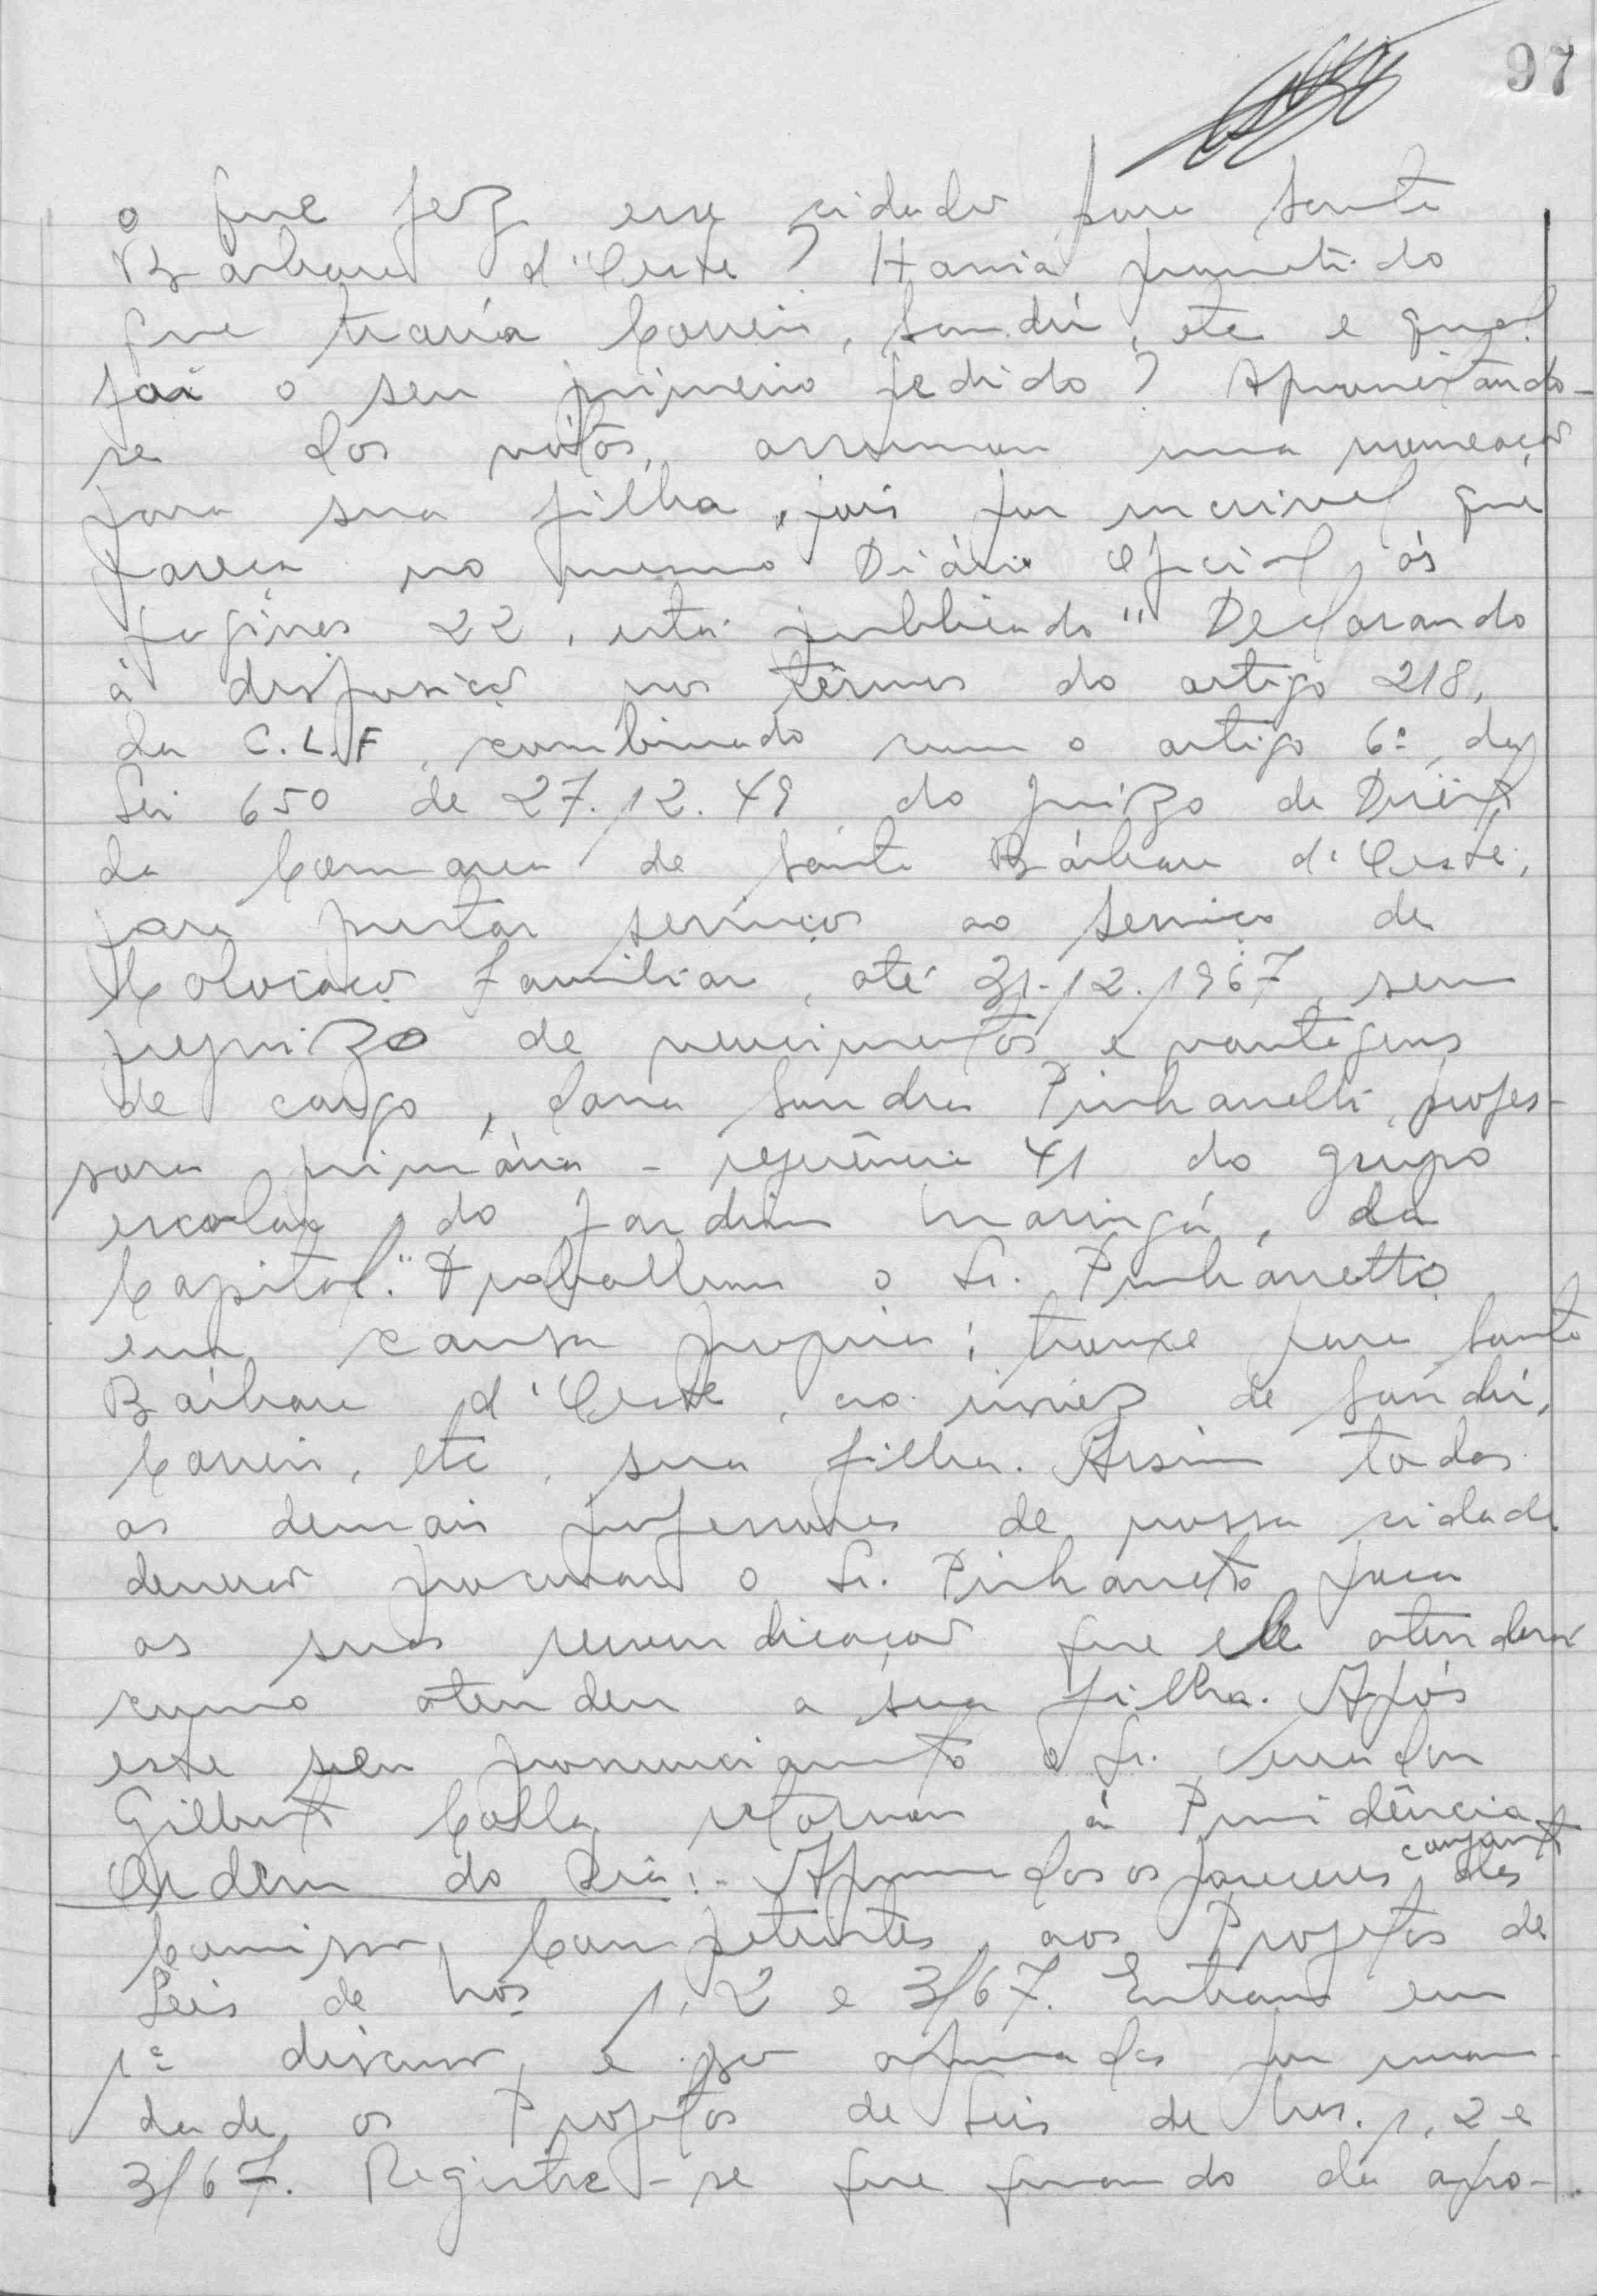 97
o que fez esse cidadão para Santa
Bárbara d'Oeste? Havia prometido
que traria Correio, Sandú, etc e qual
foi o seu primeiro pedido? Aproveitando-
se dos votos, arrumou uma nomeação
para sua filha, pois por incrivel que
pareça no mesmo Diário Oficial às
páginas 22, está publicado "Declarando
à disposição nos têrmos do artigo 218,
da C.L.F, combinado com o artigo 6º da
Lei 650 de 27.12.49 do Juizo de Direito
da Comarca de Santa Bárbara d'Oeste,
para prestar serviços ao serviço de
Colocação Familiar, até 31-12.1967, sem
prejuizo de vencimentos e vantagens
de cargo, dona Sandra Pinhanelli, profes-
sora primária - referência 41 do grupo
escolar do Jardim Maringá, da
Capital." Trabalhou o Sr. Pinhanetto
em causa propria; trouxe para Santa
Bárbara d'Oeste, ao invez de Sandú,
Correio, etc, sua filha. Assim todas
as demais professoras de nossa cidade
devem procurar o Sr. Pinhaneto para
as suas reivindicações que ele atenderá
como atendeu a sua filha. Após
este seu pronunciamento o Sr. Vereador
Gilberto Colla retornou à Presidência
Ordem do Dia:- Aprovados os pareceres conjunto das
Comissões Competentes, aos Projetos de
Leis de nos 1, 2 e 3/67. Entram em
1ª discussão e são aprovados por unani-
dade os Projetos de Leis de nos. 1, 2 e
3/67. Registre-se que quando da apro-